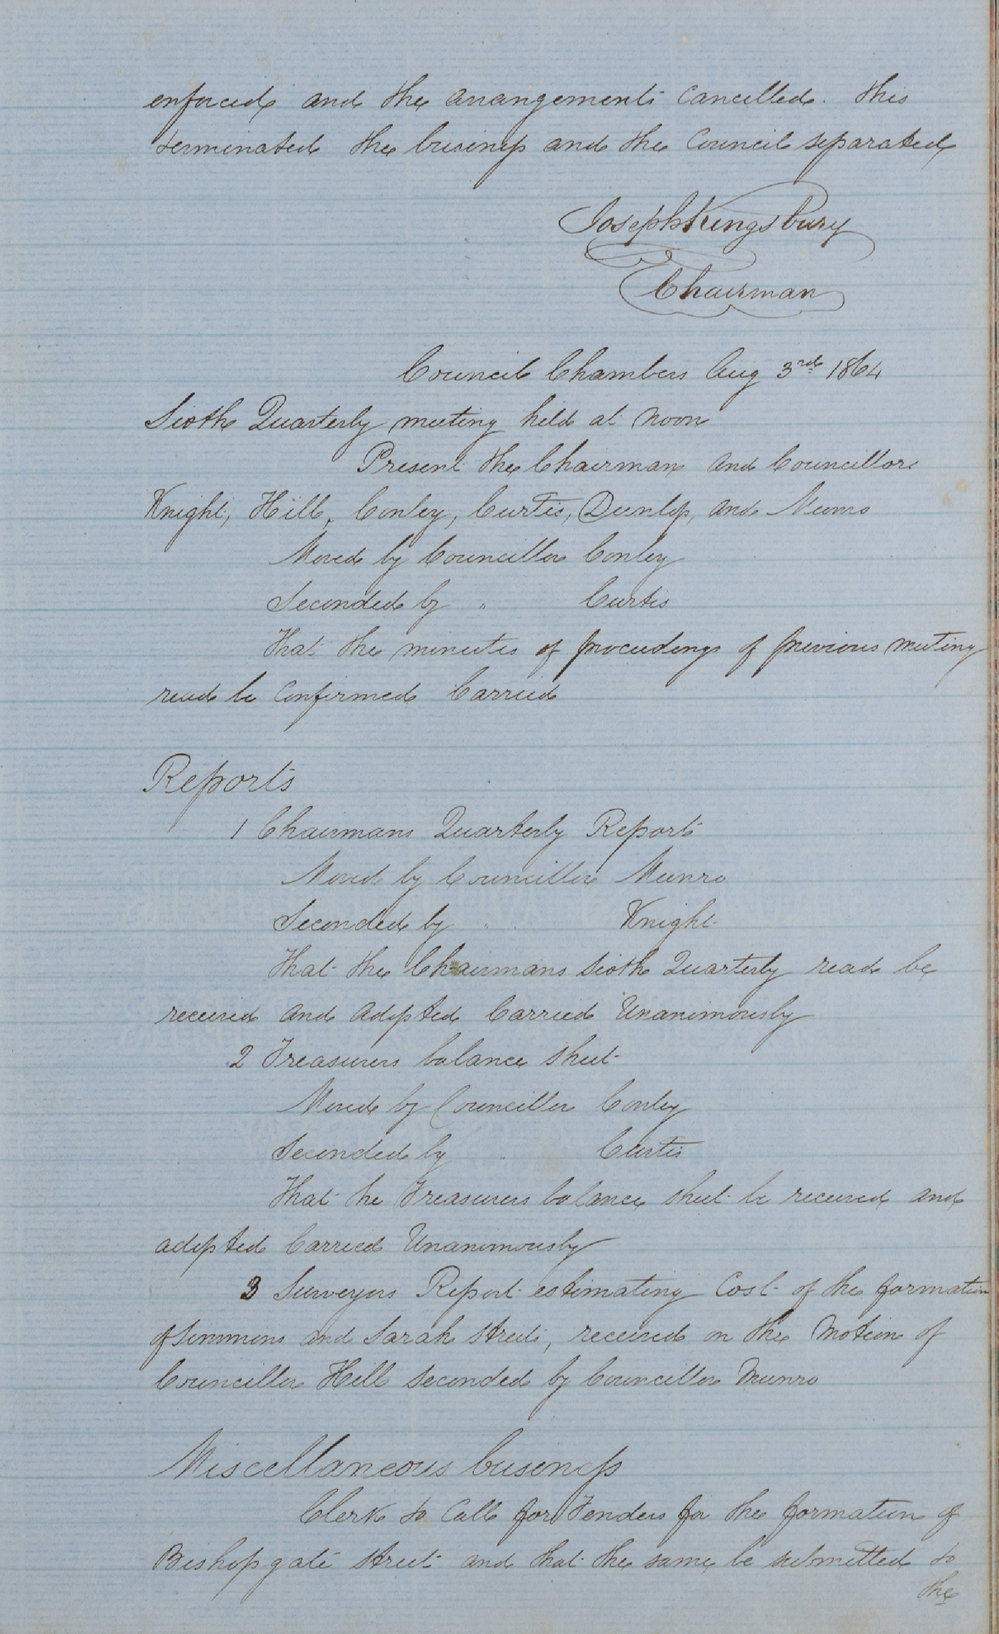 enforced and the arrangements cancelled. This
terminated the business and the Council separated
Joseph Kingsbury
Chairman
Council Chambers Aug 3rd 1864
Sixth Quarterly meeting held at Noon
Present the Chairman and Councillors
Knight, Hill, Conley, Curtis, Dunlop, and Munro
Moved by Councillor Conley
Seconded by " Curtis
That the minutes of proceedings of previous meeting
read be confirmed Carried
Reports
1 Chairmans Quarterly Report
Moved by Councillor Munro
Seconded by " Knight
That the Chairmans Sixth Quarterly read be
received and adopted Carried Unanimously
2 Treasurers balance sheet
Moved by Councillor Conley
Seconded by " Curtis
That he Treasurers balance sheet be received and
adopted Carried Unanimously
3 Surveyors Report estimating Cost of the formation
of Simmons and Sarah Streets, received on the Motion of
Councillor Hill seconded by Councillor Munro
Miscellaneous business
Clerk to Call for Tenders for the formation of
Bishopgate Street and that the same be submitted to
the